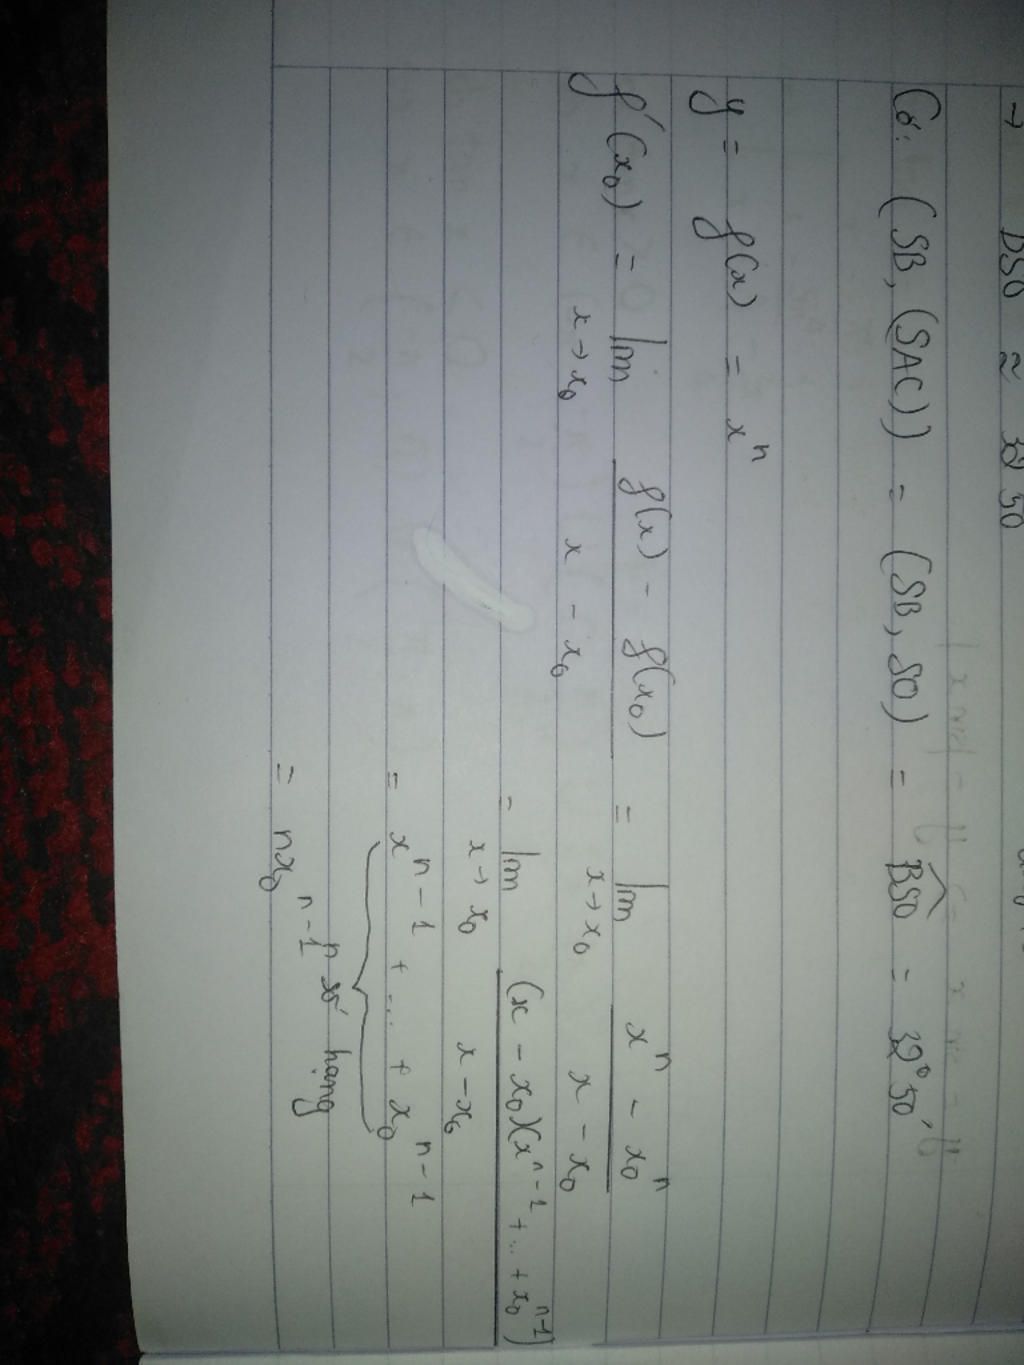 → BSO ≈ 39 50
Có: (SB, (SAC)) = (SB, SO) = BSO = 39°50'
y = f(x) = xⁿ
f'(x₀) = lim x→x₀ (f(x) - f(x₀)) / (x - x₀) = lim x→x₀ (xⁿ - x₀ⁿ) / (x - x₀)
= lim x→x₀ (x - x₀)(xⁿ⁻¹ + ... + x₀ⁿ⁻¹) / (x - x₀)
= xⁿ⁻¹ + ... + x₀ⁿ⁻¹
n số hạng
= nx₀ⁿ⁻¹